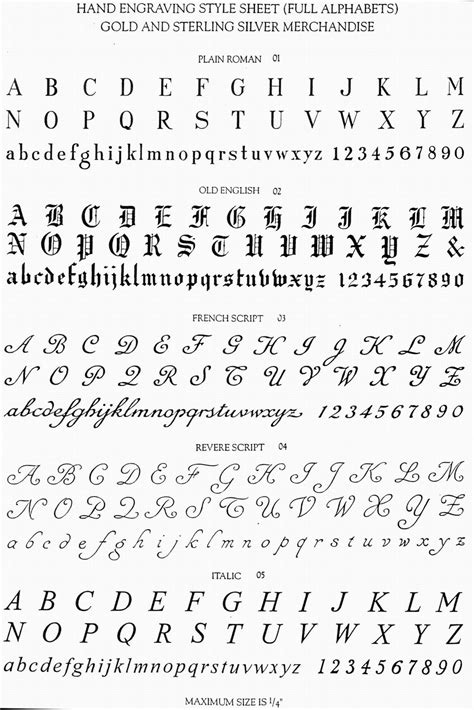 HAND ENGRAVING STYLE SHEET (FULL ALPHABETS)
GOLD AND STERLING SILVER MERCHANDISE
PLAIN ROMAN 01
A B C D E F G H I J K L M
N O P Q R S T U V W X Y Z
abcdefghijklmnopqrstuvwxyz 1234567890
OLD ENGLISH 02
A B C D E F G H I J K L M
N O P Q R S T U V W X Y Z &
abcdefghijklmnopqrstuvwxyz 1234567890
FRENCH SCRIPT 03
A B C D E F G H I J K L M
N O P Q R S T U V W X Y Z
abcdefghijklmnopqrstuvwxyz 1234567890
REVERE SCRIPT 04
A B C D E F G H I J K L M
N O P Q R S T U V W X Y Z
a b c d e f g h i j k l m n o p q r s t u v w x y z
ITALIC 05
A B C D E F G H I J K L M
N O P Q R S T U V W X Y Z
abcdefghijklmnopqrstuvwxyz 1234567890
MAXIMUM SIZE IS 1/4"